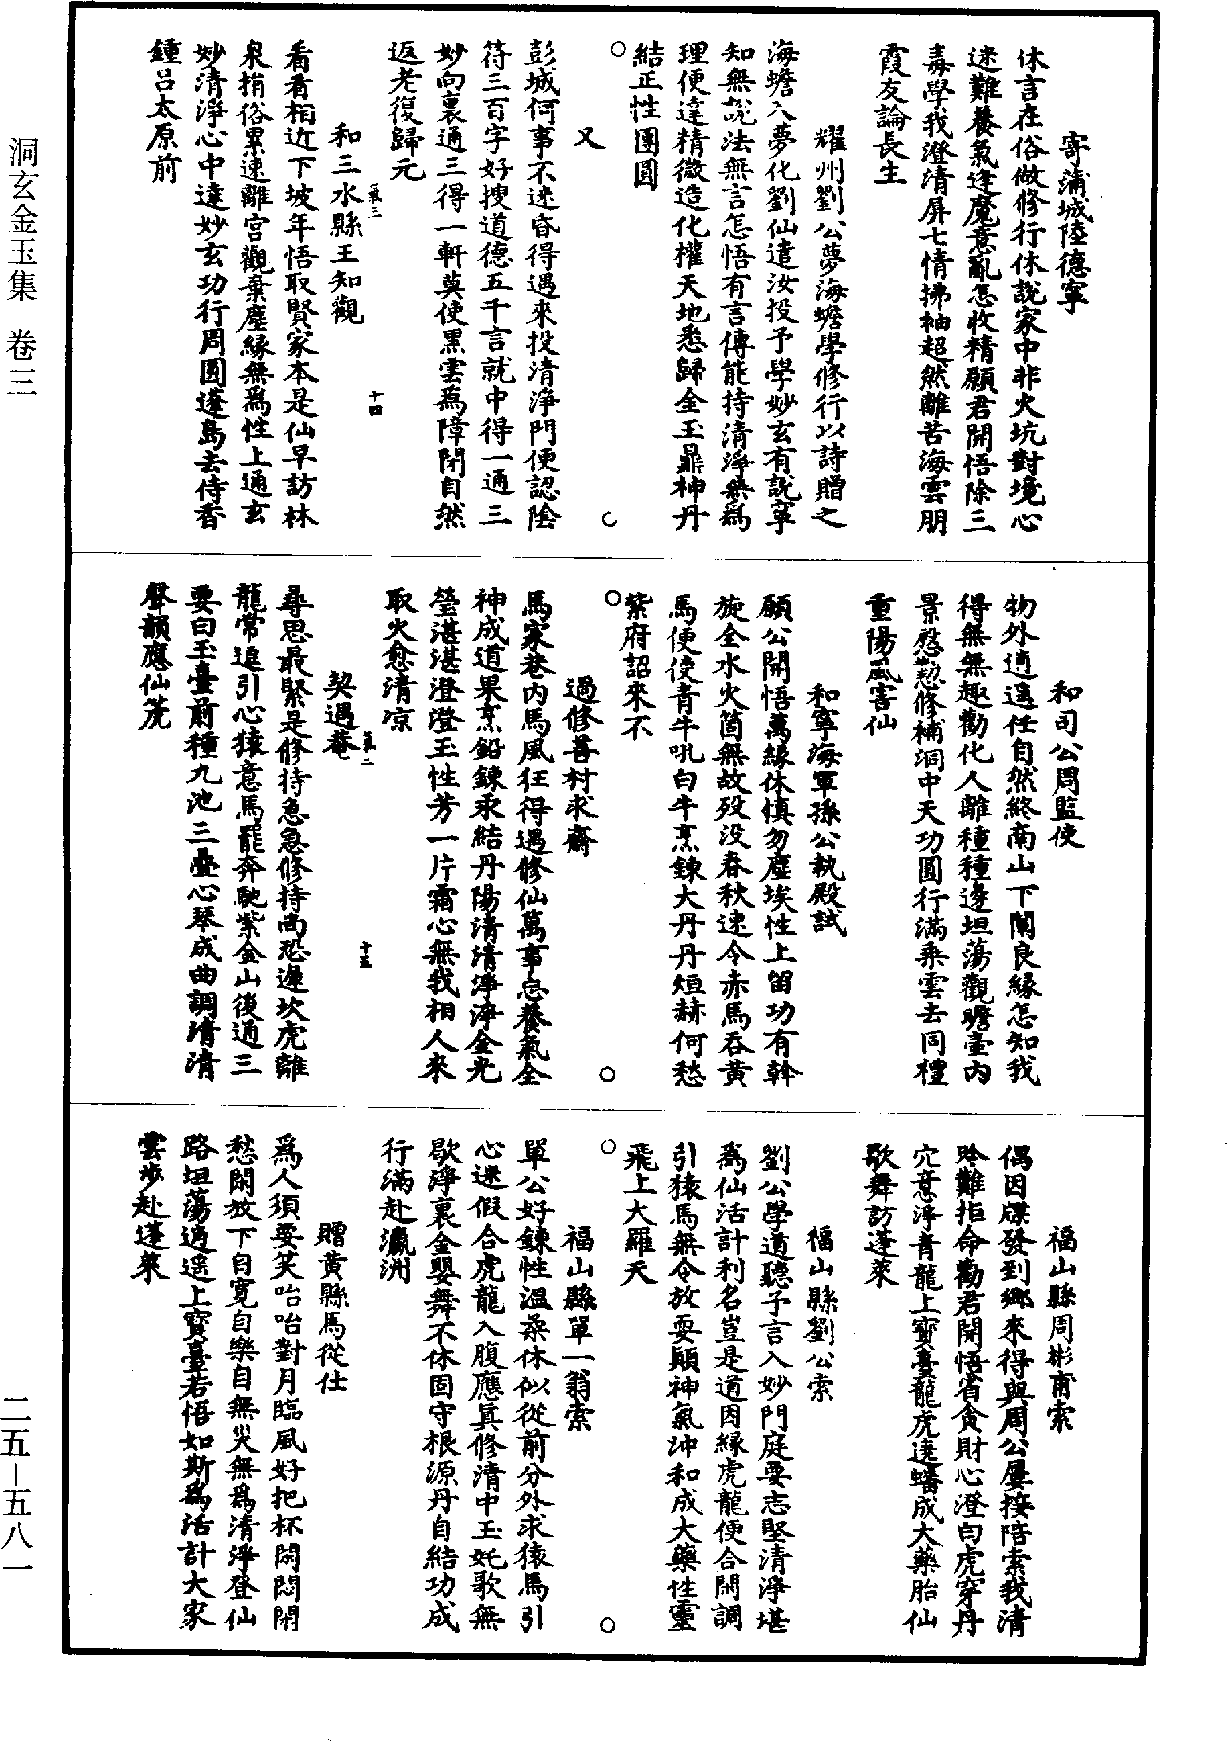 洞玄金玉集　卷三
寄蒲城陸德寧
休言在俗做修行休說家中非火坑對境心
迷難養氣逢魔意亂怎收精願君開悟除三
毒學我澄清屏七情拂袖超然離苦海雲朋
霞友論長生
耀州劉公夢海蟾學修行以詩贈之
海蟾入夢化劉仙遣汝投予學妙玄有說寧
知無說法無言怎悟有言傳能持清淨無爲
理便達精微造化權天地悉歸金玉鼎神丹
結正性團圓
又
彭城何事不迷昏得遇來投清淨門便認陰
符三百字好搜道德五千言就中得一通三
妙向裏通三得一軒莫使黑雲爲障閉自然
返老復歸元
和三水縣王知觀
十四
看看相近下坡年悟取賢家本是仙早訪林
泉捎俗累速離宮觀棄塵緣無爲性上通玄
妙清淨心中達妙玄功行周圓蓬島去侍香
鍾呂太原前
和司公周監使
物外逍遙任自然終南山下闡良緣怎知我
得無無趣勸化人離種種邊坦蕩觀瞻臺內
景慇懃修補洞中天功圓行滿乘雲去同禮
重陽風害仙
和寧海軍孫公執殿試
願公開悟萬緣休慎勿塵埃性上留功有幹
旋全水火箇無故歿沒春秋速令赤馬吞黃
馬便使青牛吼白牛烹鍊大丹丹烜赫何愁
紫府詔來不
過修善村求齋
馬家巷內馬風狂得遇修仙萬事忘養氣全
神成道果烹鉛鍊汞結丹陽清清淨淨金光
瑩湛湛澄澄玉性芳一片霜心無我相人來
取火愈清凉
契遇菴
十五
尋思最緊是修持急急修持尚恐遲坎虎離
龍常追引心猿意馬罷奔馳紫金山後通三
要白玉臺前種九池三疊心琴成曲調清清
聲韻應仙箎
福山縣周彬甫索
偶因牒發到鄉來得與周公屢接陪索我清
吟難拒命勸君開悟省貪財心澄白虎穿丹
穴意淨青龍上寶臺龍虎遶蟠成大藥胎仙
歌舞訪蓬萊
福山縣劉公索
劉公學道聽予言入妙門庭要志堅清淨堪
爲仙活計利名豈是道因緣虎龍便合閑調
引猿馬無令放耍顛神氣沖和成大藥性靈
飛上大羅天
福山縣單一翁索
單公好鍊性溫柔休似從前分外求猿馬引
心迷假合虎龍入腹應眞修清中玉奼歌無
歇淨裏金嬰舞不休固守根源丹自結功成
行滿赴瀛洲
贈黃縣馬從仕
爲人須要笑咍咍對月臨風好把杯閑悶閑
愁閑放下自寬自樂自無災無爲清淨登仙
路坦蕩逍遙上寶臺若悟如斯爲活計大家
雲步赴蓬萊
二五－五八一